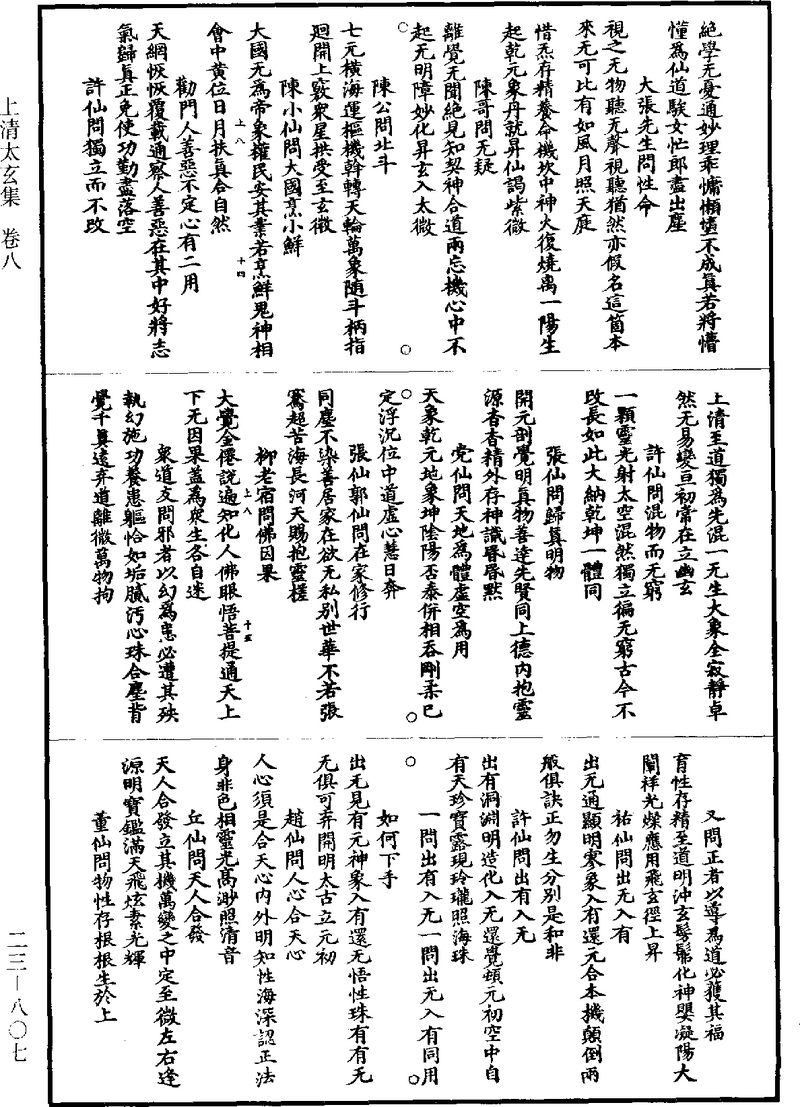 上清太玄集　卷八
絕學无憂通妙理乖慵懶墮不成眞若將懵
懂為仙道騃女忙郎盡出塵
大張先生問性命
視之无物聽无聲視聽猶然亦假名這箇本
來无可比有如風月照天庭
惜炁存精養命機坎中神火復燒离一陽生
起乾元象丹就昇仙謁紫微
陳哥問无疑
離覺无聞絕見知契神合道兩忘機心中不
起无明障妙化昇玄入太微
陳公問北斗
七元橫海運樞機斡轉天輪萬象随斗柄指
廻開上竅衆星拱受至玄徵
陳小仙問大國烹小鮮
大國无為帝象權民安其業若烹鮮鬼神相
上八
十四
會中黃位日月扶真合自然
勸門人善惡不定心有二用
天網恢恢覆載通察人善惡在其中好將志
氣歸真正免使功勤盡落空
許仙問獨立而不改
上清至道獨為先混一无生大象全寂靜卓
然无易變亘初常在立幽玄
許仙問混物而无窮
一顆靈光射太空混然獨立徧无窮古今不
改長如此大納乾坤一體同
張仙問歸真明物
開元剖覺明真物善達先賢同上德内抱靈
源杳杳精外存神識昬昬黙
党仙問天地為體虛空為用
天象乾元地象坤隂陽否泰併相吞剛柔已
定浮沉位中道虛心慧日奔
張仙郭仙問在家修行
同塵不染善居家在欲无私別世華不若張
騫超苦海長河天賜抱靈槎
柳老宿問佛因果
大覺金僊說遍知化人佛眼悟菩提通天上
上八
十五
下无因果盖為衆生各自迷
衆道友問邪者以幻為患必遭其殃
執幻施功養患軀恰如垢膩汚心珠合塵背
覺千眞遠弃道離微萬物拘
又問正者以導為道必獲其福
育性存精至道明沖玄髣髴化神嬰凝陽大
闡祥光燦應用飛玄徑上昇
祐仙問出无入有
出无通顯明寥象入有還元合本機顛倒兩
般俱訣正勿生分別是和非
許仙問出有入无
出有洞淵明造化入无還覺頓元初空中自
有天珍寶露現玲瓏照海珠
一問出有入无一問出无入有同用
如何下手
出无見有元神象入有還无悟性珠有有无
无俱可弃開明太古立元初
趙仙問人心合天心
人心須是合天心内外明知性海深認正法
身非色相靈光髙渺照清音
丘仙問天人合發
天人合發立其機萬變之中定至微左右逢
源明寶鑑滿天飛炫素光輝
董仙問物性存根根生於上
二三—八〇七